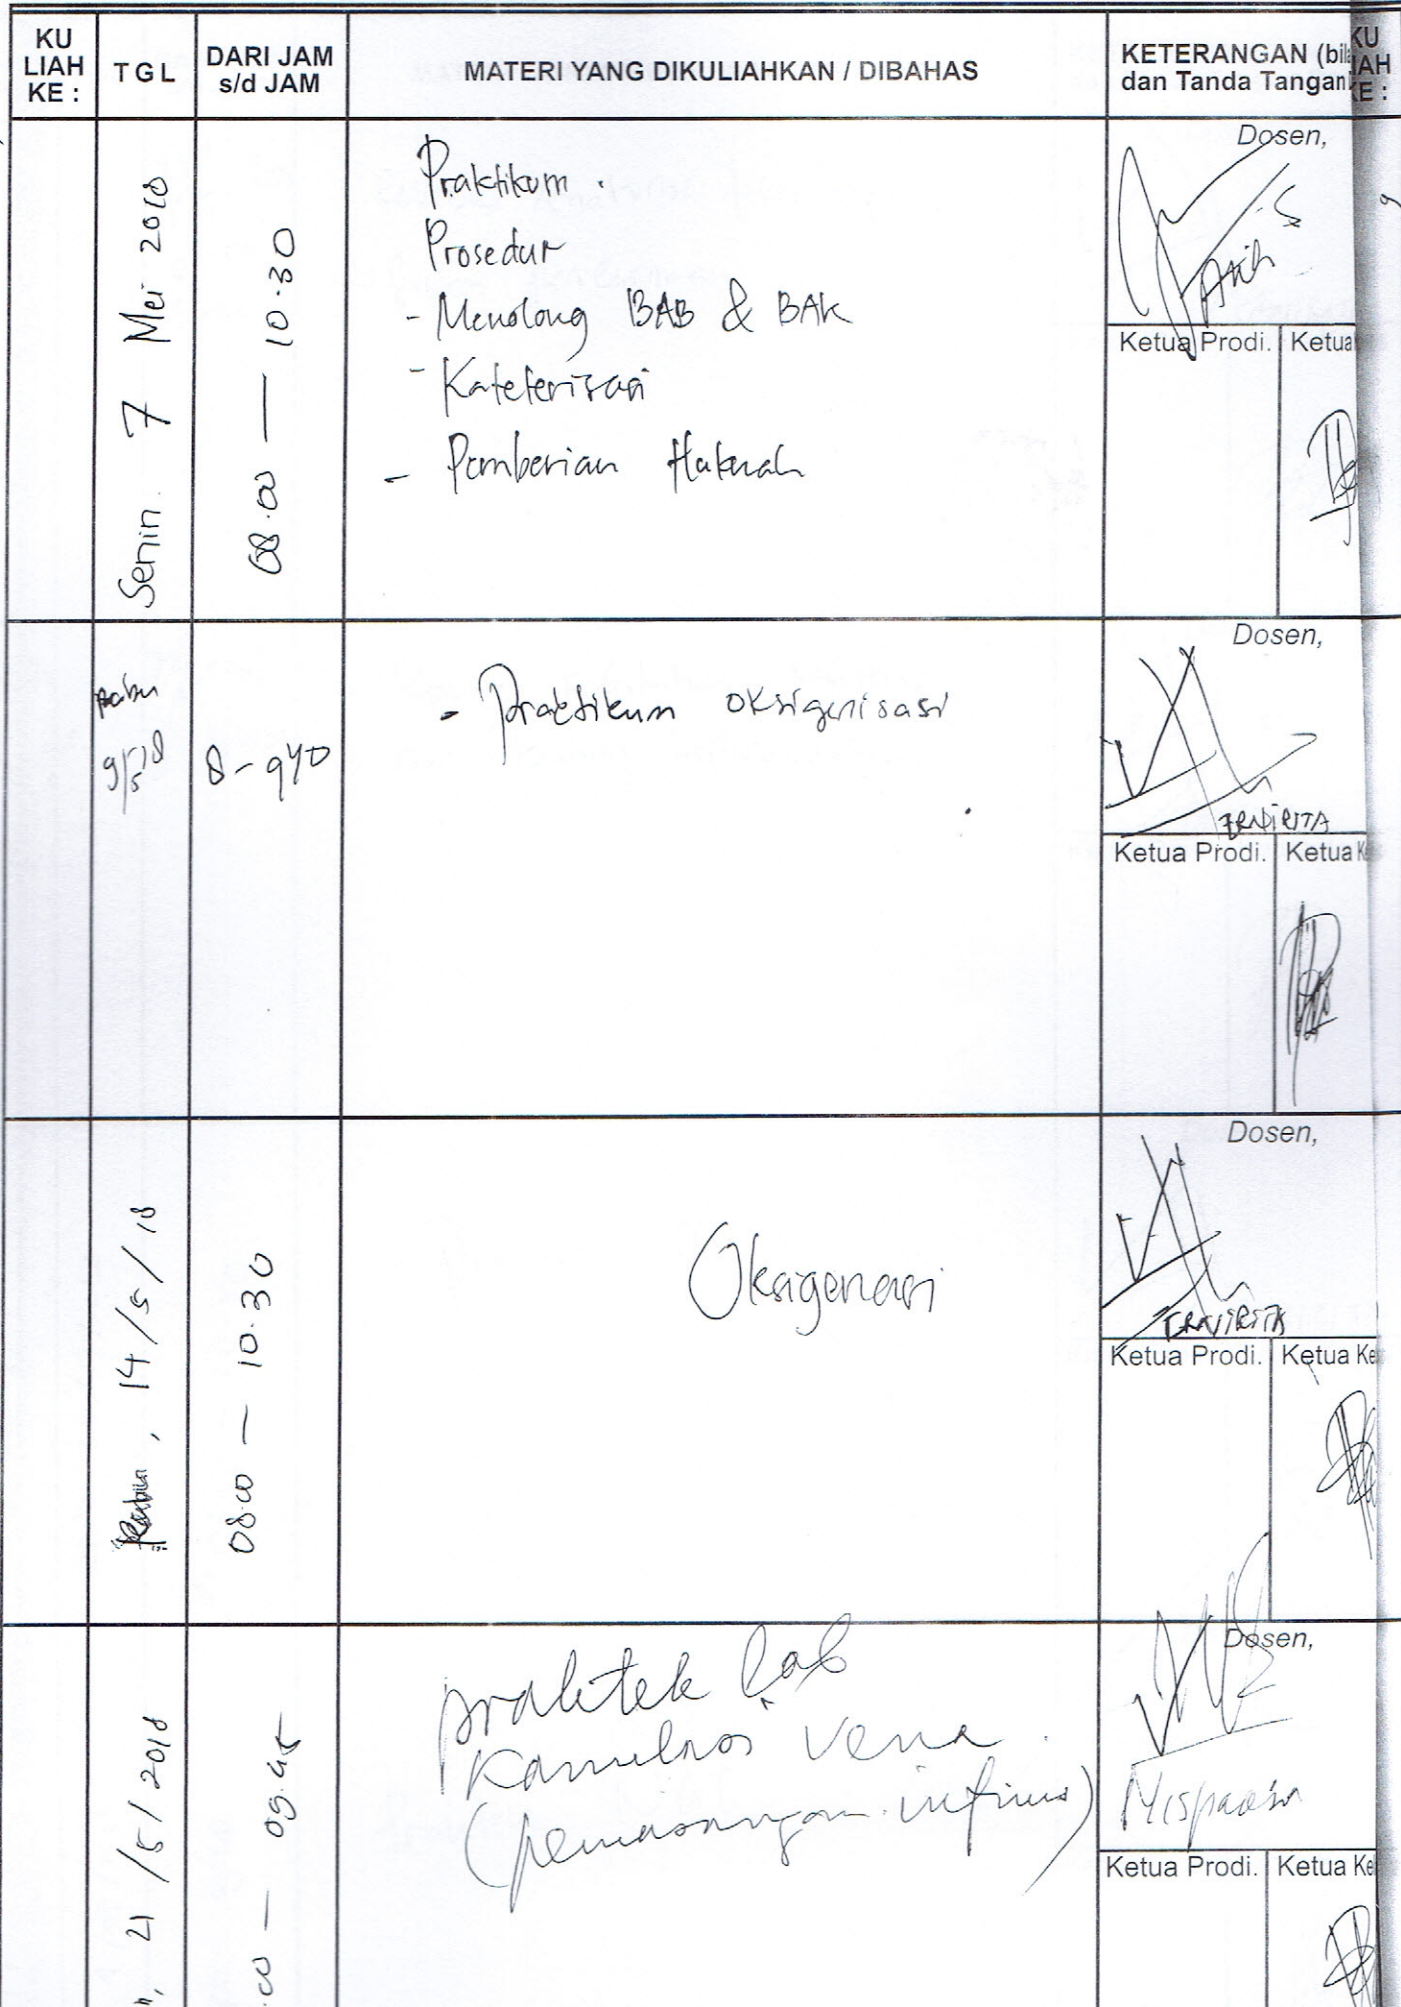 KU
LIAH
KE :
TGL
DARI JAM
s/d JAM
MATERI YANG DIKULIAHKAN / DIBAHAS
KETERANGAN
dan Tanda Tangan
KU
KE :
Senin 7 Mei 2018
08.00 — 10.30
Praktikum.
Prosedur
- Menolong BAB & BAK
- Kateterisasi
- Pemberian Huknah
Dosen,
Ketua Prodi.
Ketua
Rabu
9/5 18
8 - 940
- Praktikum Oksigenisasi
Dosen,
ERNIRITA
Ketua Prodi.
Ketua
, 14/5/18
08.00 — 10.30
Oksigenasi
Dosen,
ERNIRITA
Ketua Prodi.
Ketua Ke
21/5/2018
.00 — 09.45
praktek lab
Kanulasi Vena.
(pemasangan infus)
Dosen,
Ketua Prodi.
Ketua Ke